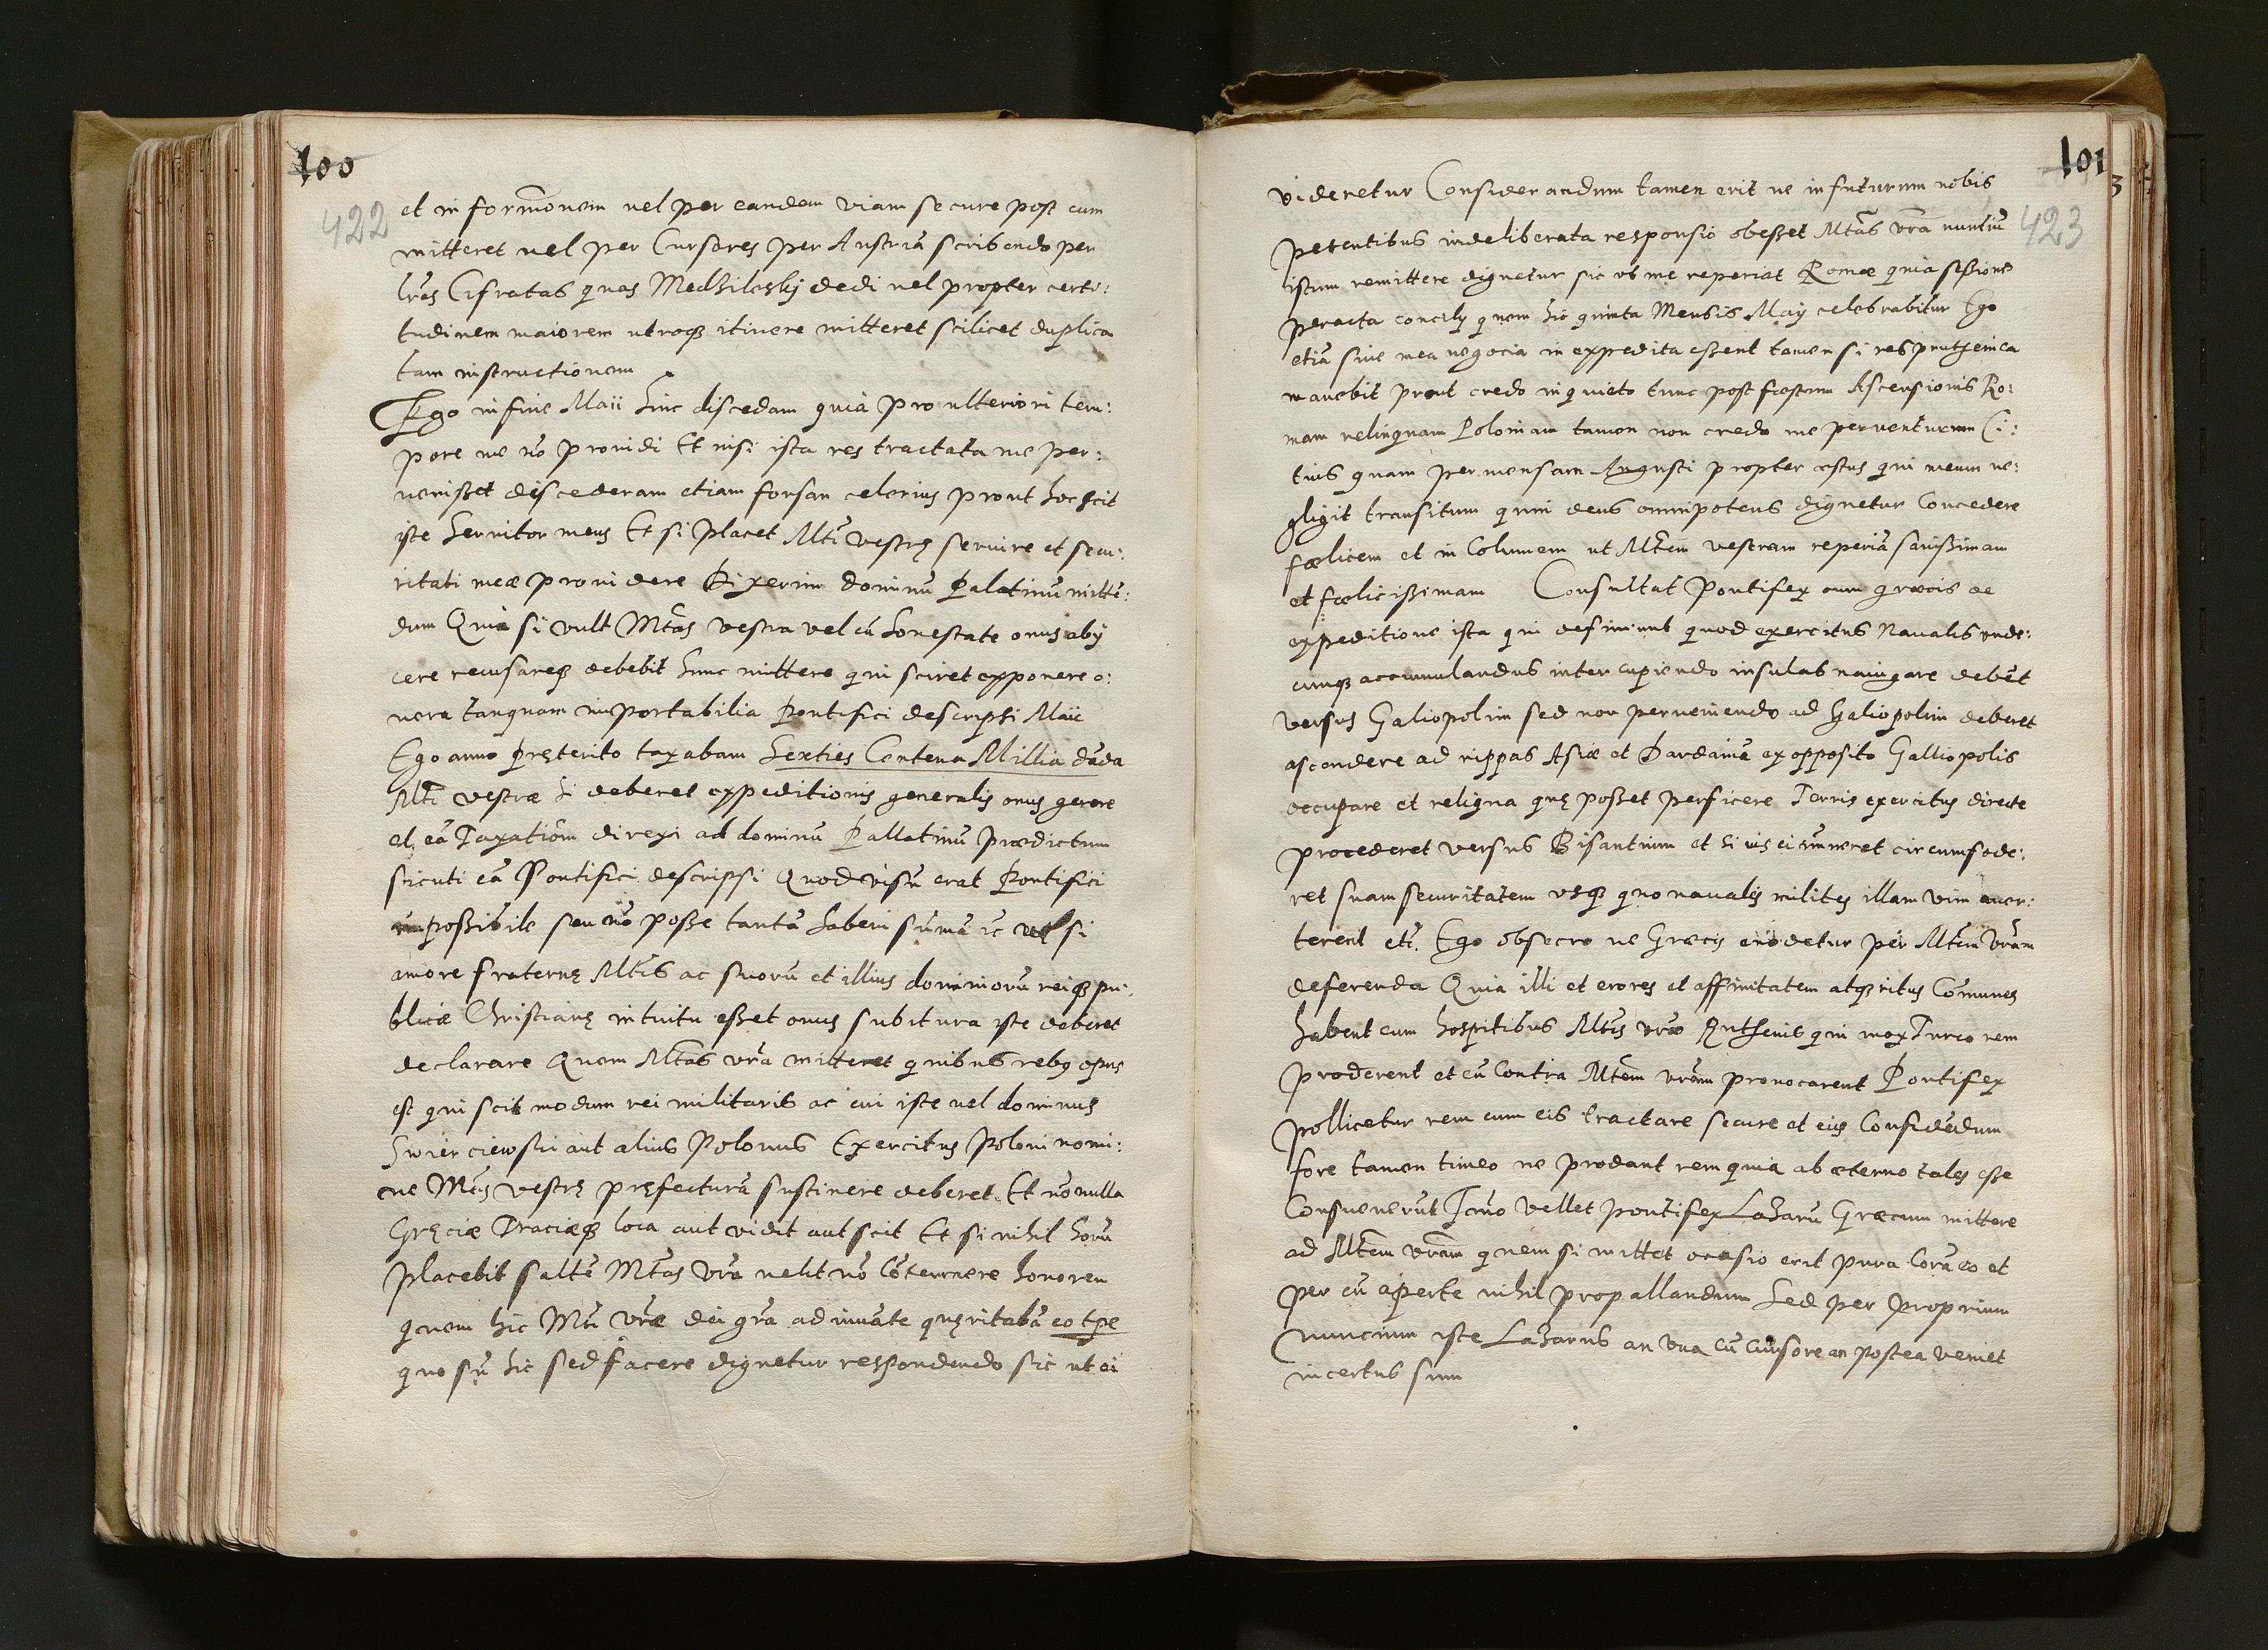 100
422
et in formōnem vel per eandem viam secure post eum
mitteret vel per Cursores per Austriā scribendo per
lr̄as Cifratas quas Medzilesky dedi vel propter certi:
tudinem maiorem utroqꝫ itinere mitteret scilicet duplica
tam instructionem
Ego in fine Maii hinc discedam quia pro ulteriori tem:
pore me nō providi Et nisi ista res tractata me per:
venisset discederam etiam forsan celerius prout hoc scit
iste servitor meus Et si placet Mti vestrę servire et secu:
ritati meæ providere Dixerim dominū Palatinū mittē:
dum Quia si vult Mtas vestra vel cū honestate onus abij
cere recusareqꝫ debebit hunc mittere qui sciret exponere o:
nera tanquam importabilia Pontifici descripsi Maii
Ego anno pręterito taxabam Sexties Centena Millia dāda
Mti vestræ si deberet expeditionis generalis onus gerere
et eā Taxatiōm direxi ad dominū Pallatinū prædictum
sicuti eā Pontifici descripsi Quod visū erat Pontifici
impossibile seu nō posse tantā haberi sūmā &c vel si
amore fraternę Mtis ac suorū et illius dominiorū reiqꝫ pu:
blicæ Christianę intuitu esset onus subitura iste deberet
declarare Quem Mtas vr̄a mitteret quibus rebꝫ opus
est qui scit modum rei militaris ac cui iste vel dominus
Swierciewski aut alius Polonus Exercitus Poloni nomi:
ne Mtis vestrę pręfecturā sustinere deberet. Et nōnulla
Gręciæ Traciæqꝫ loca aut vidit aut scit Et si nihil horū
placebit saltē Mtas vr̄a velit nō cōtemnere honorem
quem hic Mti vr̄æ dei gr̄a adiuvāte quęritabā eo tp̄e
quo sū hic sed facere dignetur respondendo sic ut ei
101
3
423
videretur Considerandum tamen erit ne in futurum nobis
petentibus indeliberata responsio obesset Mtas vr̄a nuntiū
istum remittere dignetur sic ut me reperiat Romæ quia sessione
peracta concilij quem hic quinta Mensis Maij celebrabitur Ego
etiā sive mea negocia in expedita essent tamen si res prutzenica
manebit prout credo inquieto tunc post festum Ascensionis Ro:
mam relinquam Poloniam tamen non credo me perventurum Ci:
tius quam per mensam Augusti propter estus qui meum ne:
gligit transitum quem deus omnipotens dignetur Concedere
fœlicem et in Columem ut Mtem vestram reperiā sanissimam
et fœlicissimam Consultat Pontifex cum græcis de
expeditione ista qui definiunt quod exercitus Navalis unde:
cunqꝫ accumulandus inter capiendo insulas navigare debēt
versus Galiopolim sed non perveniendo ad Galiopolim deberet
ascendere ad rippas Asiæ et Dardaniā ex opposito Galliopolis
occupare et reliqua quę posset perficere Terris exercitus directe
procederet versus Bisantium et si vis ei immineret circumfode:
ret suam securitatem usqꝫ quo navales milites illam vim aver:
terent etc. Ego obsecro ne Græcis eiusdetur per Mtem vr̄am
deferenda Quia illi et erores et affinitatem atqꝫ ritus Cōmunes
habent cum hospitibus Mtis vr̄æ Ruthenis qui mox Turco rem
proderent et eū Contra Mtem vr̄am provocarent Pontifex
pollicetur rem cum eis tractare secure et eius Confidēdum
fore tamen timeo ne prodant rem quia ab æterno tales esse
Consueverūt vellet Pontifex Lazarū Græcum mittere
ad Mtem vr̄am quem si mittet ocasio erit pura Corā eo et
per eū aperte nihil propallandum Sed per proprium
nuncium iste Lazarus an vna cū Cursore an postea veniet
incertus sum